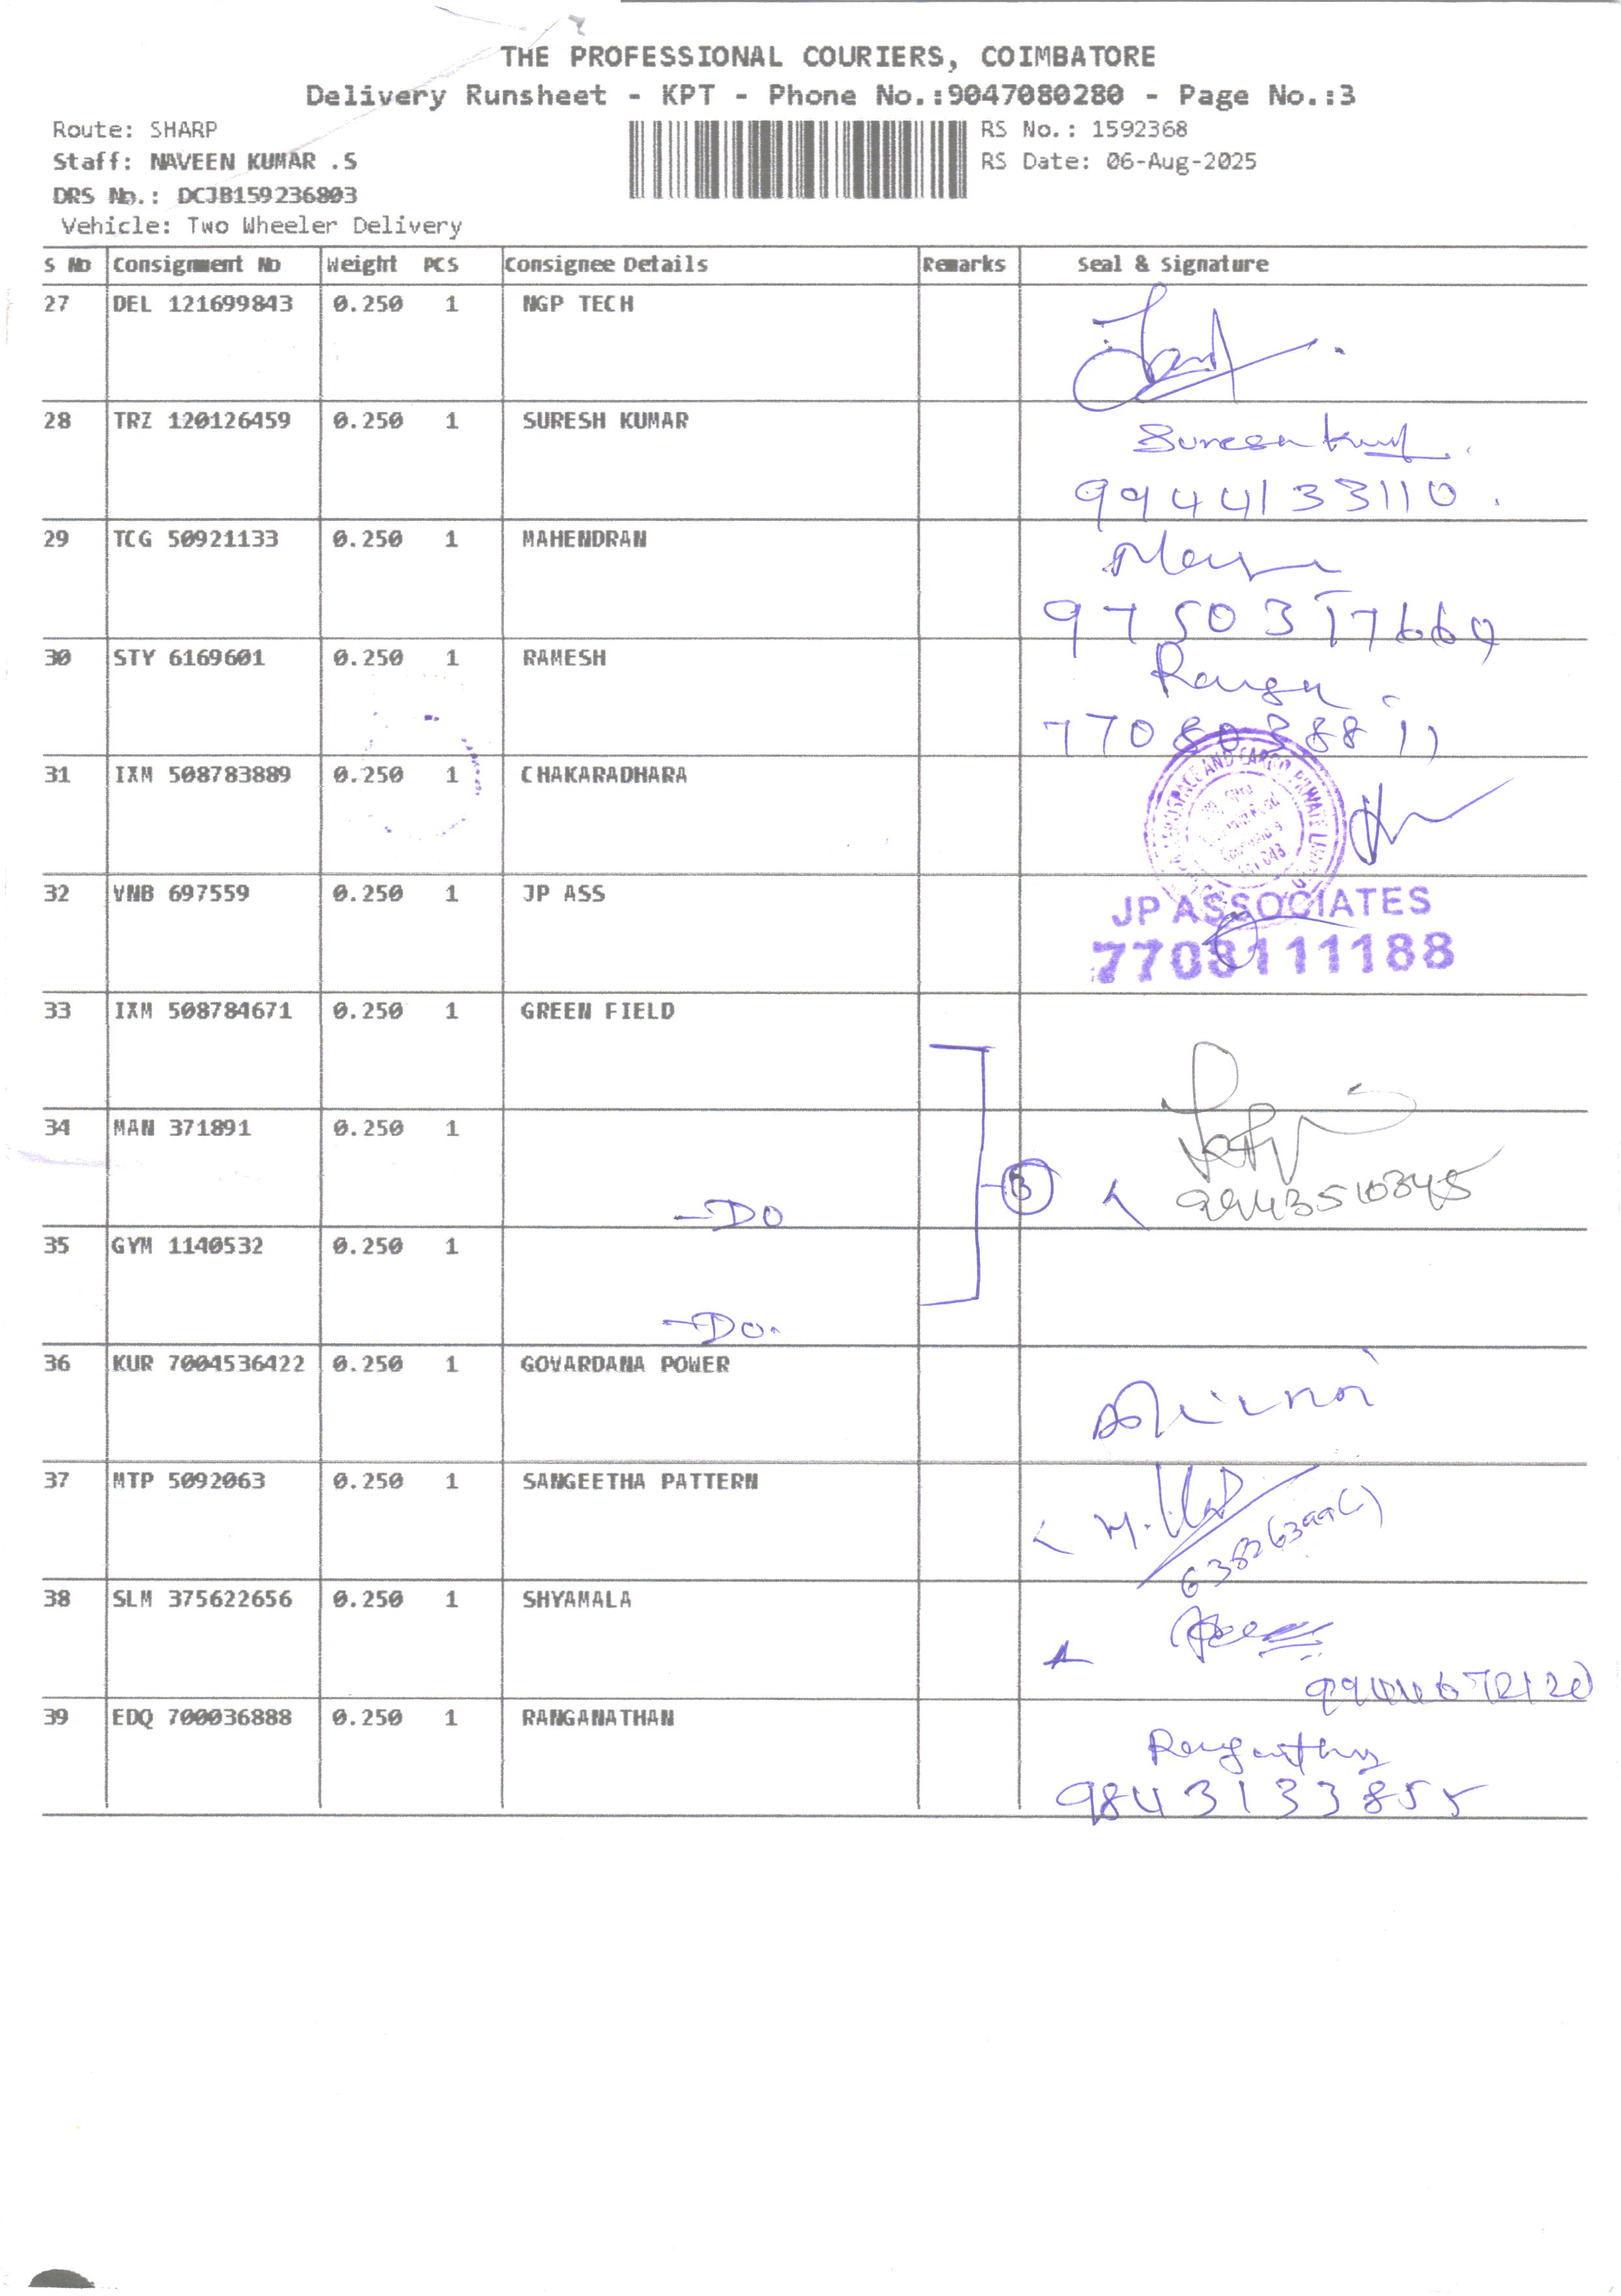 THE PROFESSIONAL COURIERS, COIMBATORE
Delivery Runsheet - KPT - Phone No.:9047080280 - Page No.:3
Route: SHARP
RS No.: 1592368
Staff: NAVEEN KUMAR .S
RS Date: 06-Aug-2025
DRS No.: DCJB159236803
Vehicle: Two Wheeler Delivery
S No Consignment No Weight PCS Consignee Details Remarks Seal & Signature
27 DEL 121699843 0.250 1 NGP TECH
28 TRZ 120126459 0.250 1 SURESH KUMAR
9944133110
29 TCG 50921133 0.250 1 MAHENDRAN
30 STY 6169601 0.250 1 RAMESH
31 IXM 508783889 0.250 1 CHAKARADHARA
32 VNB 697559 0.250 1 JP ASS
JP ASSOCIATES
7703111188
33 IXM 508784671 0.250 1 GREEN FIELD
34 MAN 371891 0.250 1
3
-DO
35 GYM 1140532 0.250 1
-Do.
36 KUR 7004536422 0.250 1 GOVARDANA POWER
37 MTP 5092063 0.250 1 SANGEETHA PATTERN
38 SLM 375622656 0.250 1 SHYAMALA
39 EDQ 700036888 0.250 1 RANGANATHAN
9843133855